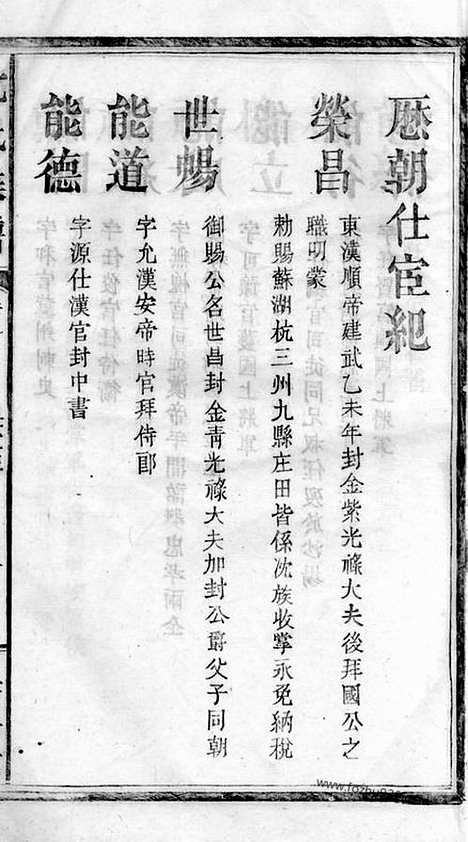 歷朝仕宦紀
榮昌
東漢順帝建武乙未年封金紫光祿大夫後拜國公之
職叨蒙
勑賜蘇湖杭三州九縣庄田皆係沈族收掌永免納稅
世暢
御賜公名世昌封金青光祿大夫加封公爵父子同朝
能道
字允漢安帝時官拜侍郎
能德
字源仕漢官封中書